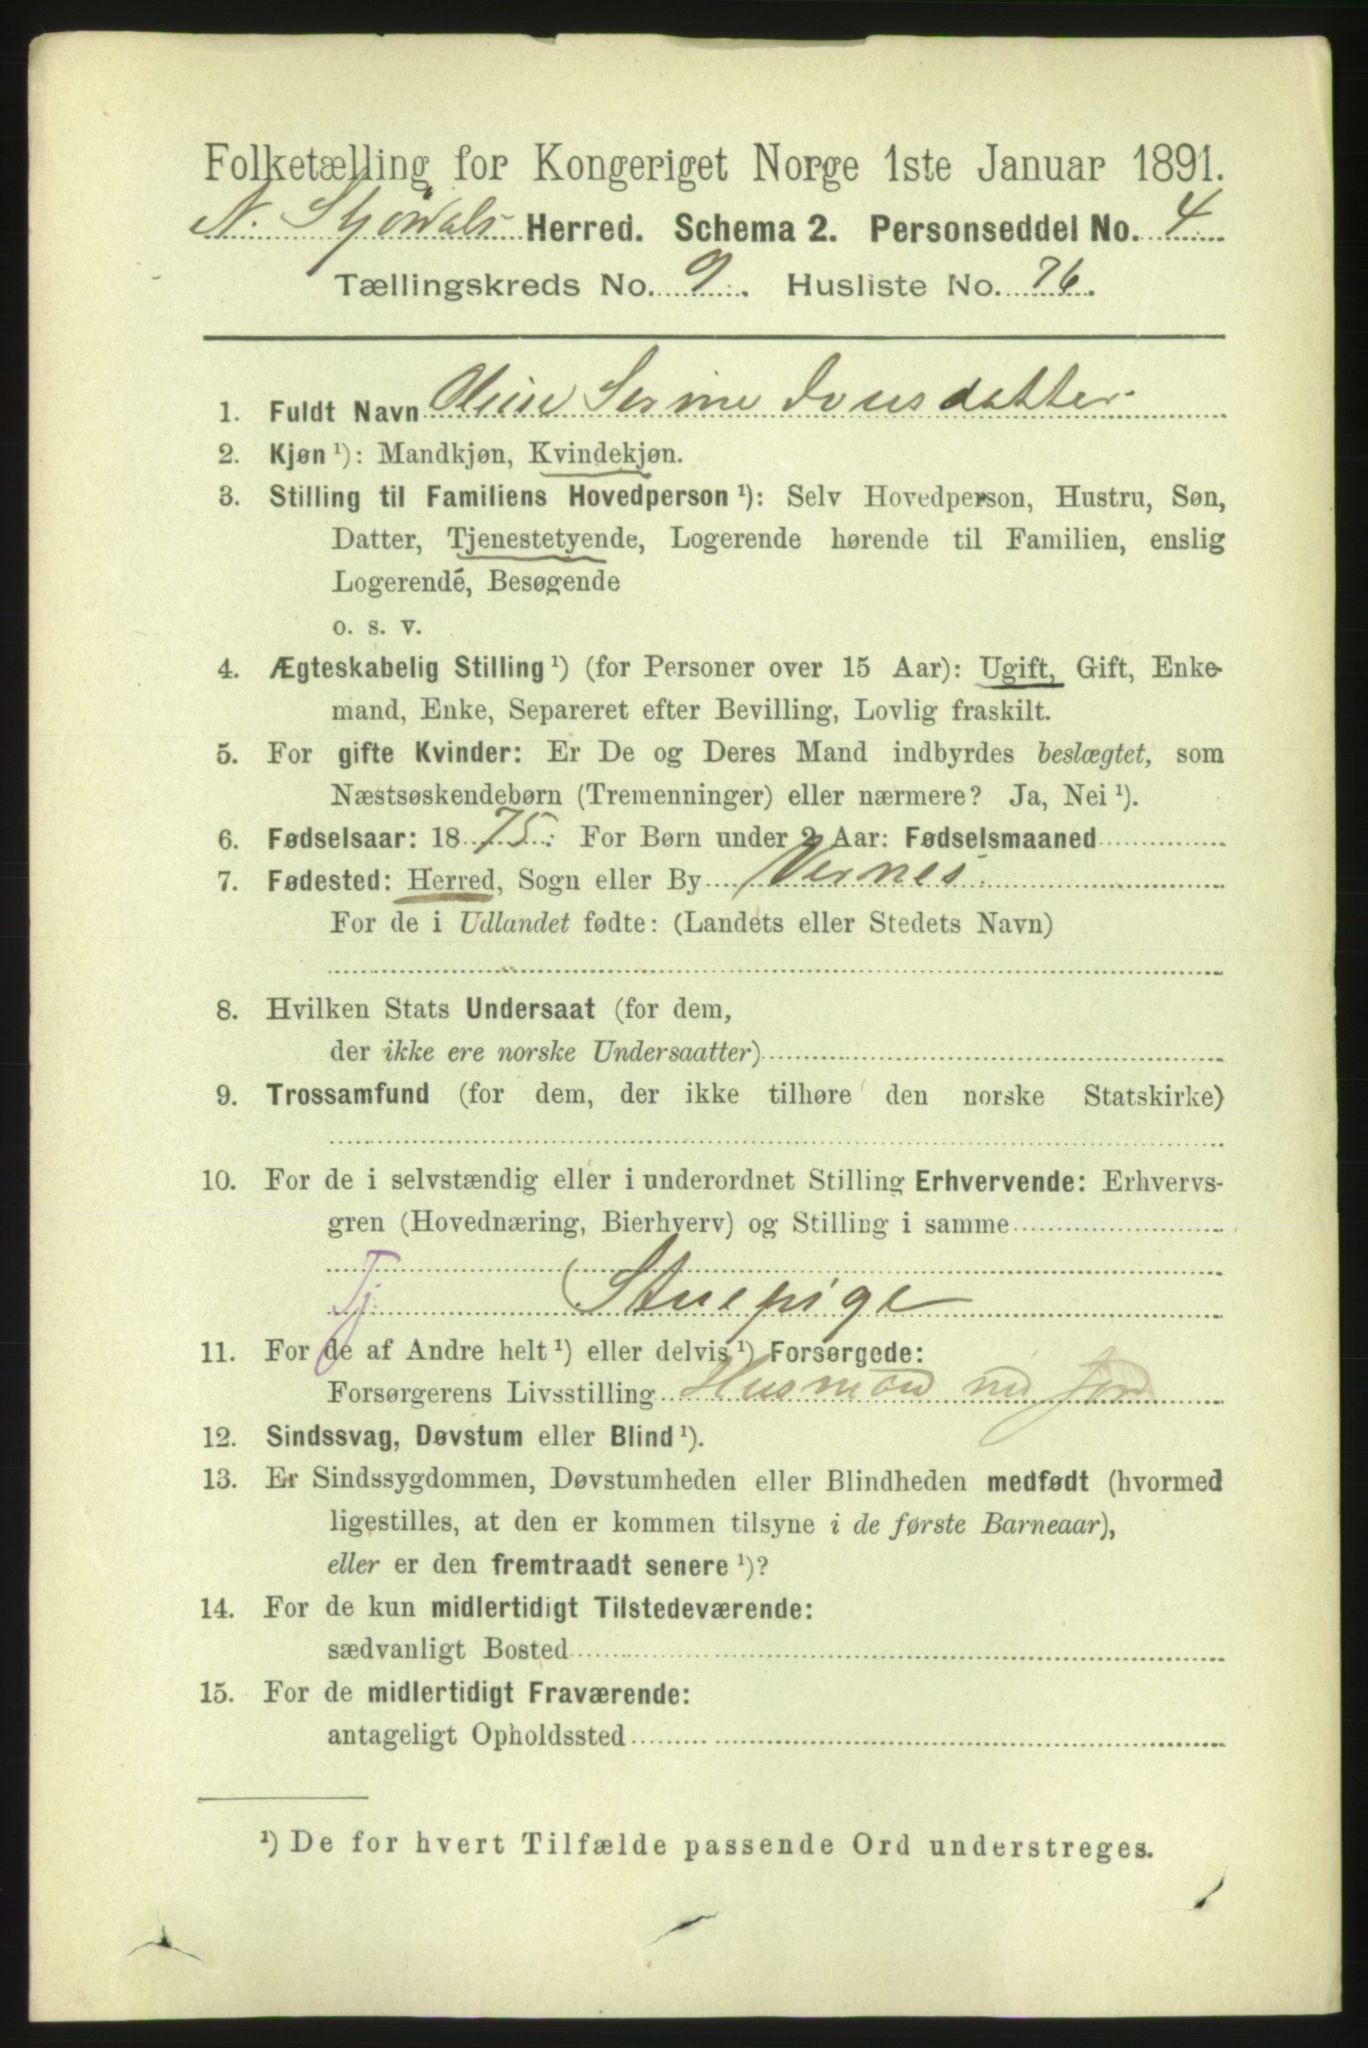 Folketælling for Kongeriget Norge 1ste Januar 1891.
N. Stjørdals Herred. Schema 2. Personseddel No. 4
Tællingskreds No. 9. Husliste No. 76.
1. Fuldt Navn Oline Serine Jonsdatter
2. Kjøn ¹): Mandkjøn, Kvindekjøn.
3. Stilling til Familiens Hovedperson ¹): Selv Hovedperson, Hustru, Søn,
Datter, Tjenestetyende, Logerende hørende til Familien, enslig
Logerende, Besøgende
o. s. v.
4. Ægteskabelig Stilling ¹) (for Personer over 15 Aar): Ugift, Gift, Enke-
mand, Enke, Separeret efter Bevilling, Lovlig fraskilt.
5. For gifte Kvinder: Er De og Deres Mand indbyrdes beslægtet, som
Næstsøskendebørn (Tremenninger) eller nærmere? Ja, Nei ¹).
6. Fødselsaar: 1875. For Børn under 2 Aar: Fødselsmaaned
7. Fødested: Herred, Sogn eller By Vernes.
For de i Udlandet fødte: (Landets eller Stedets Navn)
8. Hvilken Stats Undersaat (for dem,
der ikke ere norske Undersaatter)
9. Trossamfund (for dem, der ikke tilhøre den norske Statskirke)
10. For de i selvstændig eller i underordnet Stilling Erhvervende: Erhvervs-
gren (Hovednæring, Bierhverv) og Stilling i samme
Tj Stuepige
11. For de af Andre helt ¹) eller delvis ¹) Forsørgede:
Forsørgerens Livsstilling Husmand m Jord
12. Sindssvag, Døvstum eller Blind ¹).
13. Er Sindssygdommen, Døvstumheden eller Blindheden medfødt (hvormed
ligestilles, at den er kommen tilsyne i de første Barneaar),
eller er den fremtraadt senere ¹)?
14. For de kun midlertidigt Tilstedeværende:
sædvanligt Bosted
15. For de midlertidigt Fraværende:
antageligt Opholdssted
¹) De for hvert Tilfælde passende Ord understreges.